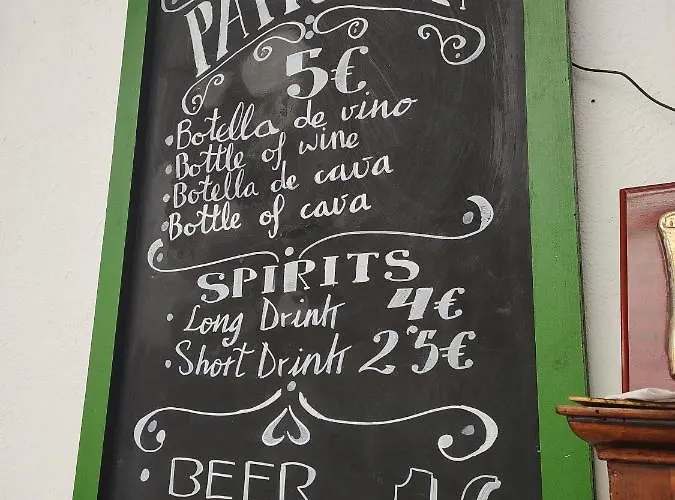 5€
• Botella de vino
• Bottle of wine
• Botella de cava
• Bottle of cava
SPIRITS
• Long Drink 4€
• Short Drink 2'5€
• BEER